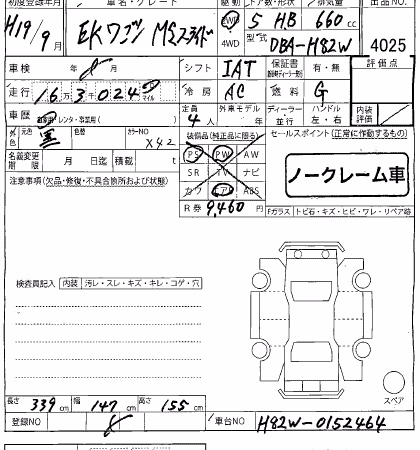 初度登録年月 車名・グレード 駆動 ドア数・形状 排気量 出品NO.
H19/9月 EKワゴン MSスライド 2WD 4WD 5 HB 660cc
型式 DBA-H82W 4025
車検 年 月 シフト IAT 保証書 有・無 評価点
走行 163024 マイル 冷房 AC 燃料 G
車歴 レンタ・事業用 定員 4人 外車モデル 年 ディーラー 並行 ハンドル 左・右 内装評価
色 元色 黒 色替 カラーNO X42 装備品(純正品に限る) セールスポイント(正常に作動するもの)
PS PW AW
名義変更期限 月 日迄 積載 t SR TV ナビ
カワ エアB ABS
注意事項(欠品・修復・不具合箇所および状態) ノークレーム車
R券 9,460円
Fガラス トビ石・キズ・ヒビ・ワレ・リペア跡
検査員記入 内装 汚レ・スレ・キズ・キレ・コゲ・穴
スペア
長さ 339cm 幅 147cm 高さ 155cm
登録NO 車台NO H82W-0152464